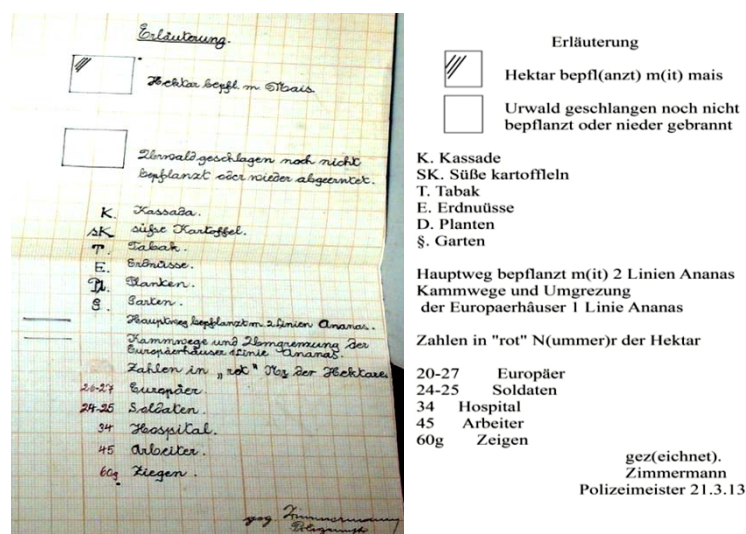 Erläuterung.
Hektar bepfl. m. Mais.
Urwald geschlagen noch nicht
bepflanzt oder wieder abgeerntet.
K. Kassada.
sK. süße Kartoffel.
T. Tabak.
E. Erdnüsse.
Pl. Planten.
G. Garten.
Hauptweg bepflanzt m. 2 Linien Ananas.
Kammwege und Umgrenzung der
Europäerhäuser 1 Linie Ananas.
Zahlen in „rot" Nr der Hektare
26-27 Europäer.
24-25 Soldaten.
34 Hospital.
45 Arbeiter.
60g Ziegen.
gez Zimmermann
Erläuterung
Hektar bepfl(anzt) m(it) mais
Urwald geschlangen noch nicht
bepflanzt oder nieder gebrannt
K. Kassade
SK. Süße kartoffleln
T. Tabak
E. Erdnuüsse
D. Planten
§. Garten
Hauptweg bepflanzt m(it) 2 Linien Ananas
Kammwege und Umgrezung
der Europaerhâuser 1 Linie Ananas
Zahlen in "rot" N(ummer)r der Hektar
20-27 Europäer
24-25 Soldaten
34 Hospital
45 Arbeiter
60g Zeigen
gez(eichnet).
Zimmermann
Polizeimeister 21.3.13